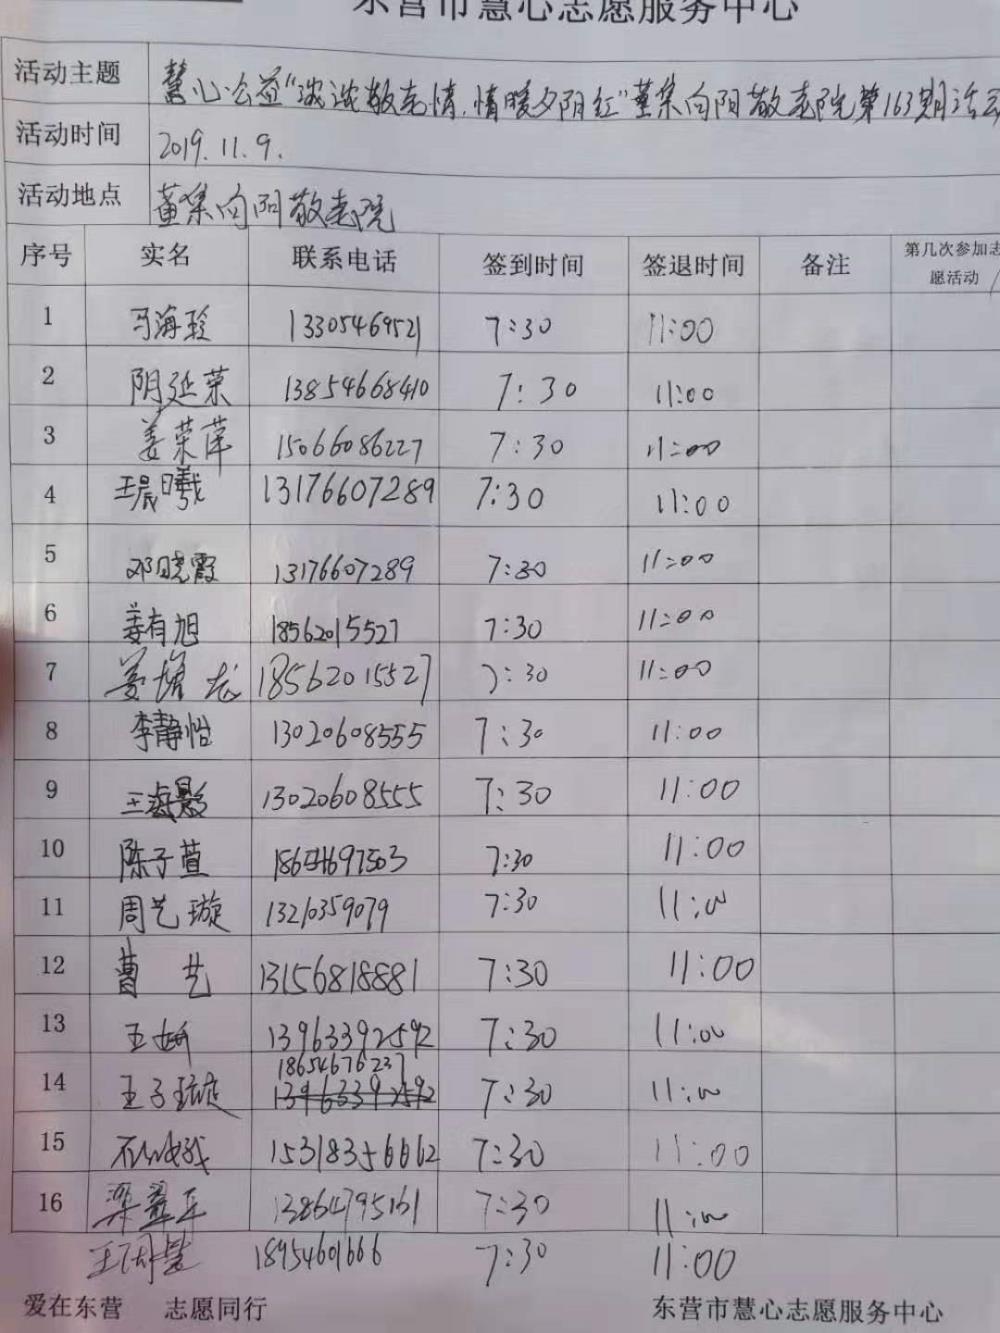 东营市慧心志愿服务中心
活动主题 慧心公益"浓浓敬老情,情暖夕阳红"董集向阳敬老院第163期活动
活动时间 2019.11.9.
活动地点 董集向阳敬老院
序号 实名 联系电话 签到时间 签退时间 备注 第几次参加志
愿活动
1 马海珍 13305469521 7:30 11:00
2 阴延荣 13854668410 7:30 11:00
3 姜荣萍 15066086227 7:30 11:00
4 王晨曦 13176607289 7:30 11:00
5 邓晓霞 13176607289 7:30 11:00
6 姜有旭 18562015527 7:30 11:00
7 姜增龙 18562015527 7:30 11:00
8 李静怡 13020608555 7:30 11:00
9 王海影 13020608555 7:30 11:00
10 陈子萱 18654697503 7:30 11:00
11 周艺璇 13210359079 7:30 11:00
12 曹艺 13156818881 7:30 11:00
13 王娇 13963392592 7:30 11:00
18654676237
14 王子璇 13963392592 7:30 11:00
15 15318356662 7:30 11:00
16 梁 13864795161 7:30 11:00
王 18954601666 7:30 11:00
爱在东营 志愿同行 东营市慧心志愿服务中心